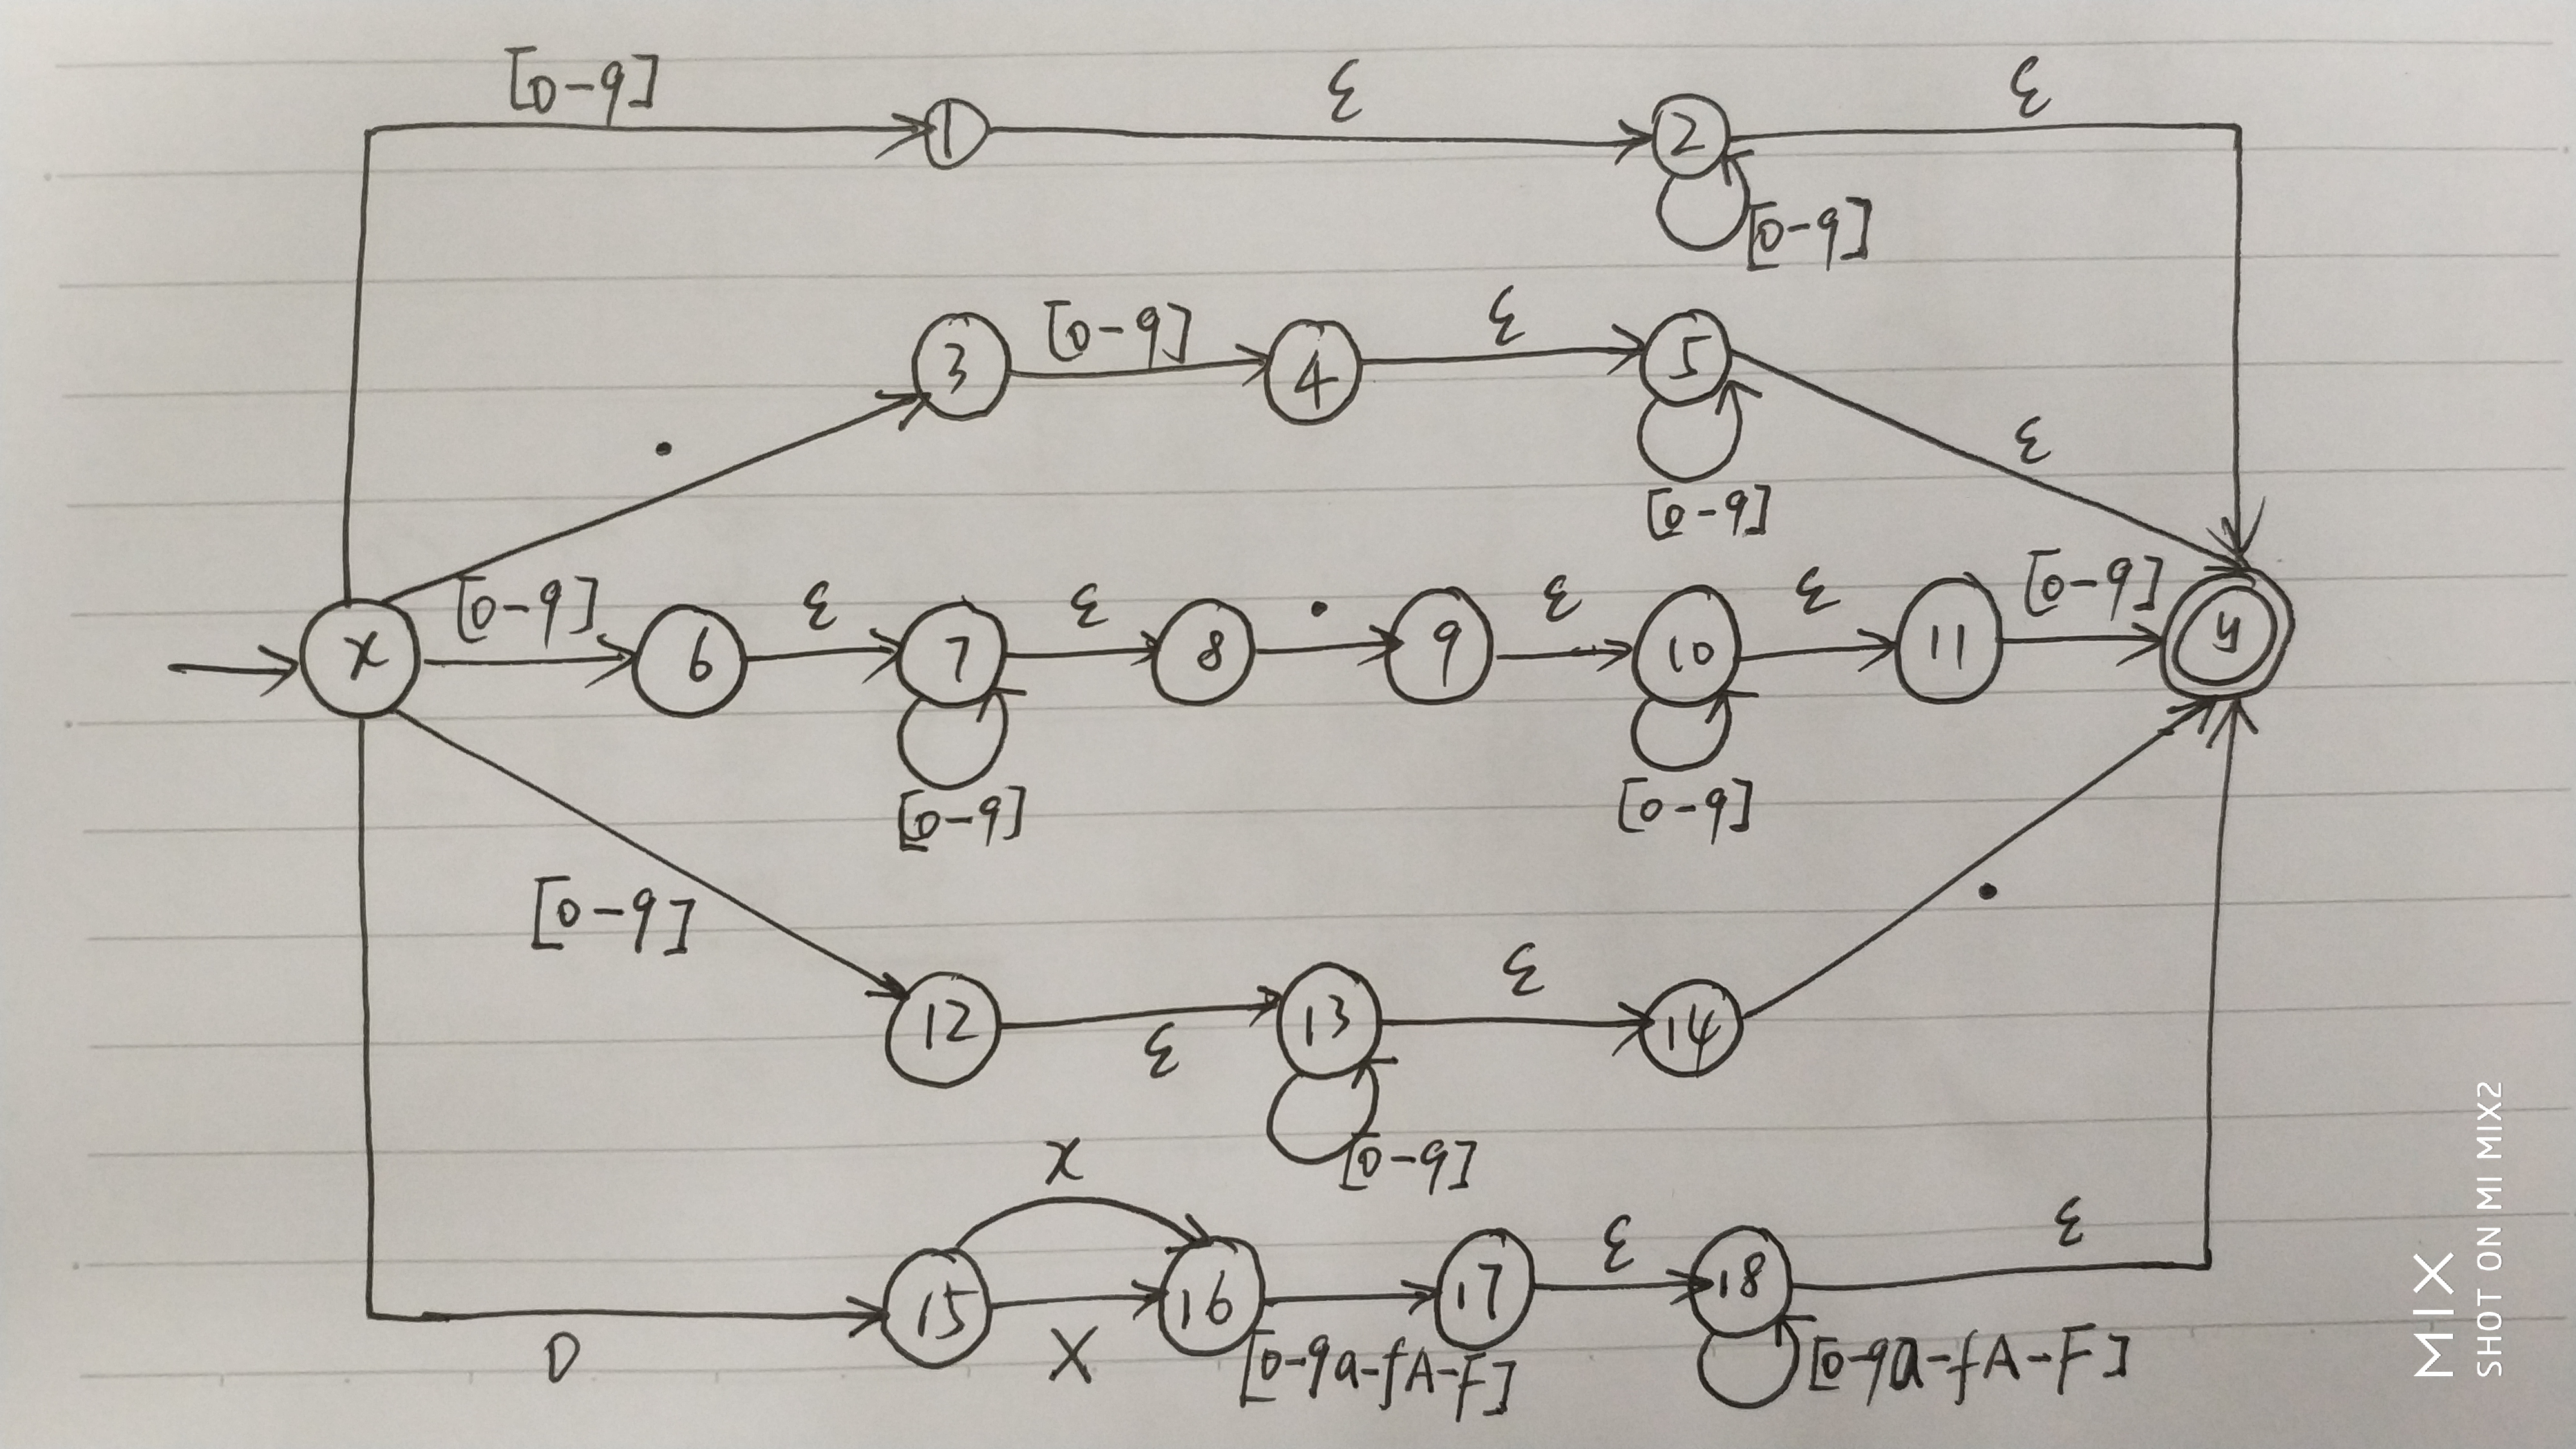 [0-9] 1 ε 2 [0-9] ε
. 3 [0-9] 4 ε 5 [0-9] ε
x [0-9] 6 ε 7 [0-9] ε 8 . 9 ε 10 [0-9] ε 11 [0-9] y
[0-9] 12 ε 13 [0-9] ε 14 .
0 15 x X 16 [0-9a-fA-F] 17 ε 18 [0-9a-fA-F] ε
MIX
SHOT ON MI MIX2